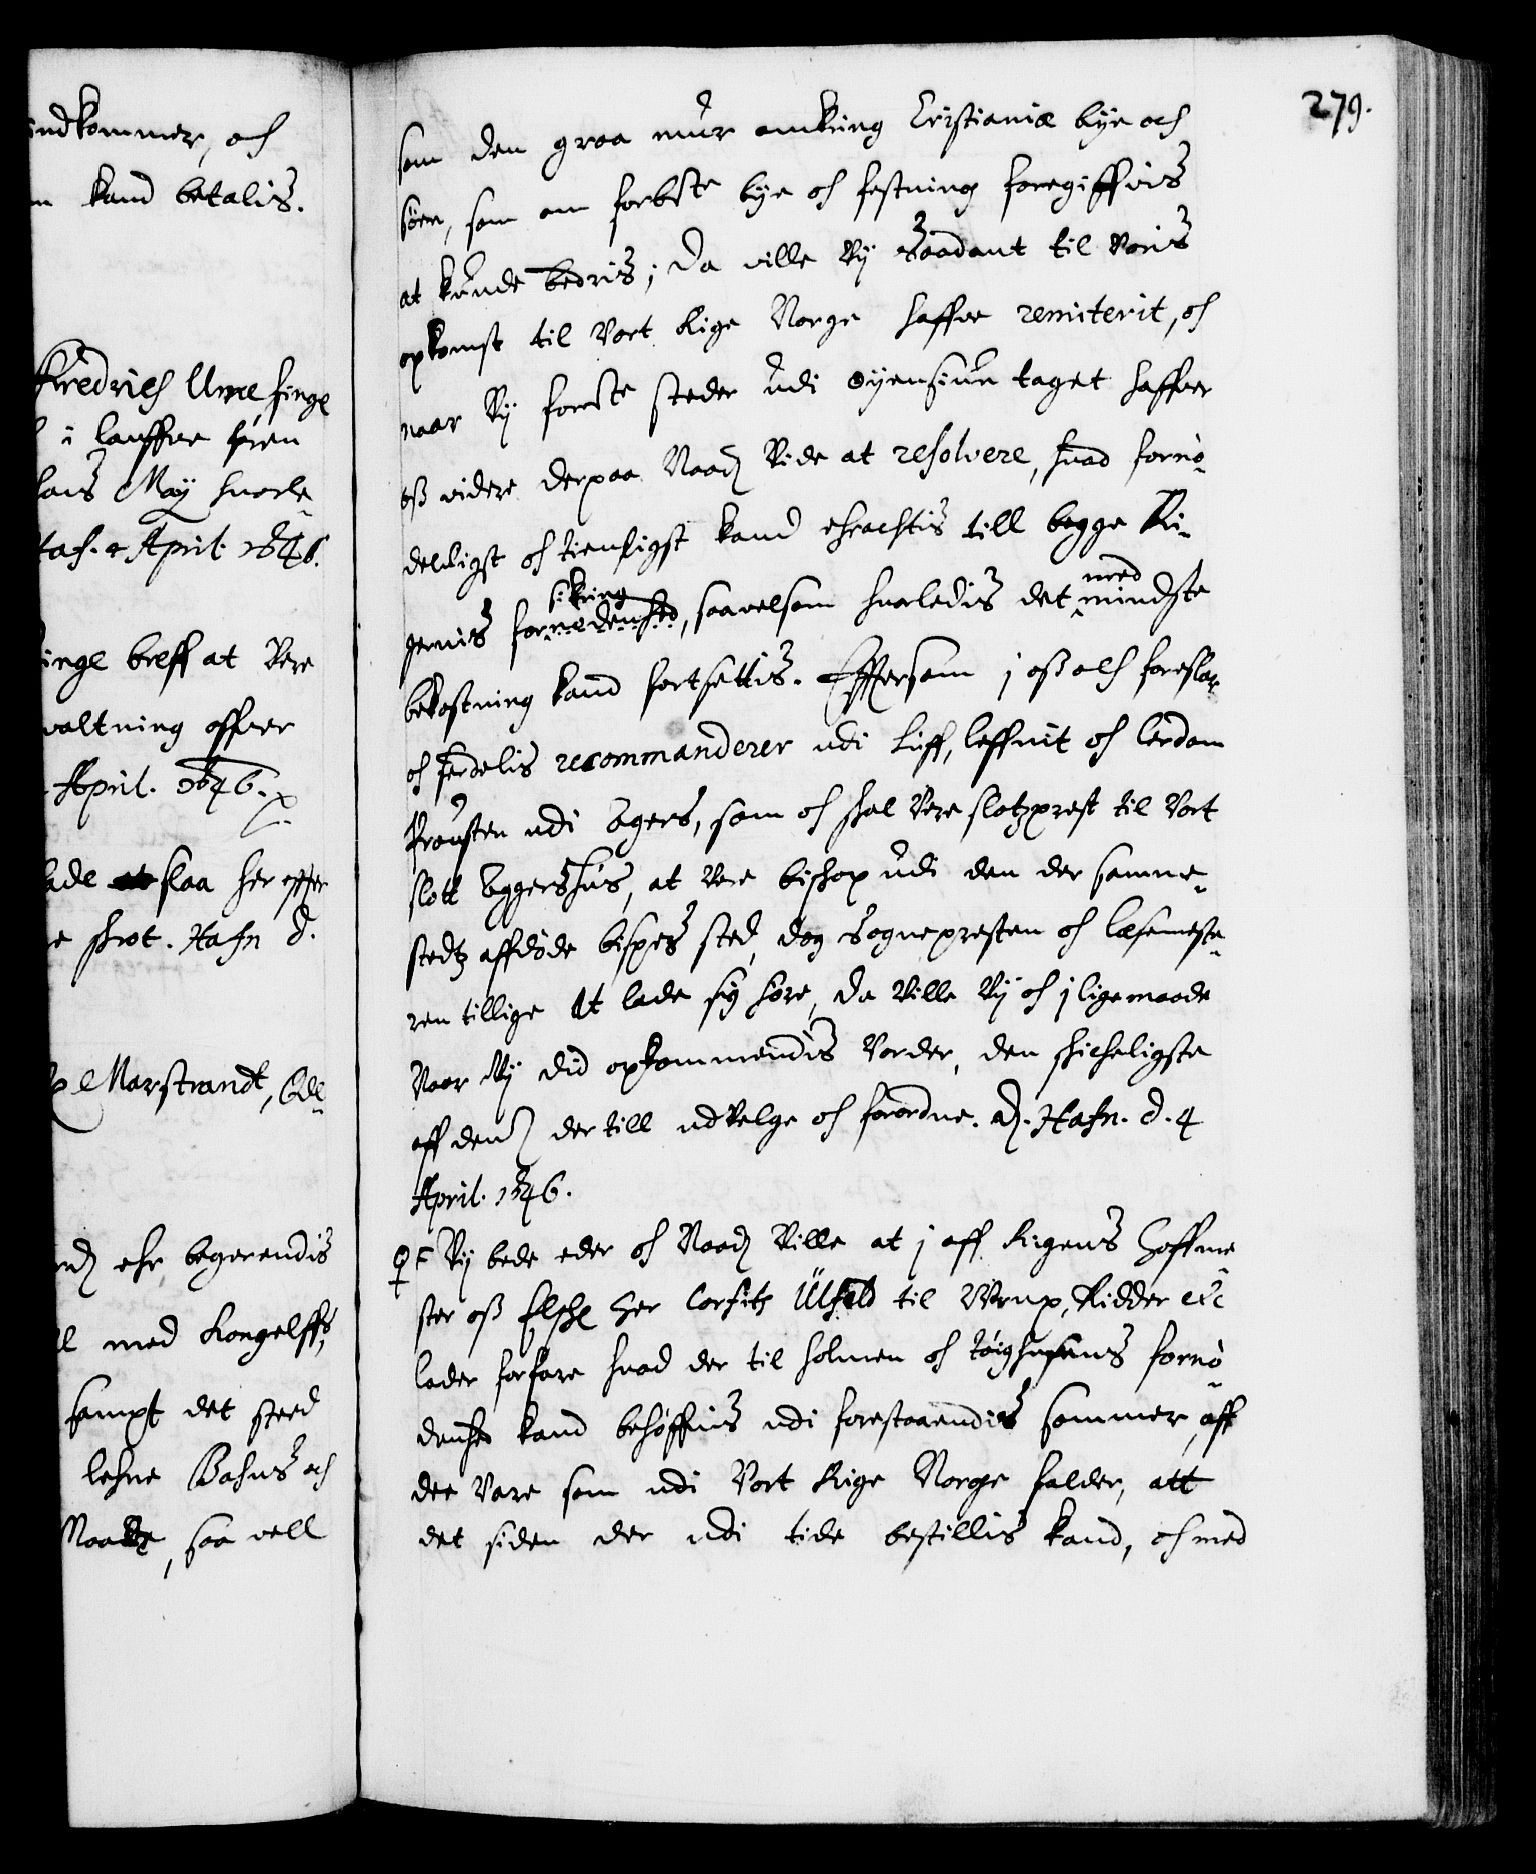 indkommer, och
kand betalis.
Fredrich Urne finge
i lauffue
hans May huorle¬
Haf. 4 April 1646.
inge breff at Vere
valtning offuer
April. 1646.
lade slaa her effter
skrot. Hafn d.
Marstrandt, Ode¬
ehr begerendis
med Kongelffs,
sampt det steed
lehne Bahus och
Naade, saa vell
279.
som den graa mur omkring Cristianiæ bye och
søen, som om forbte bye och festning foregiffuis
at kunde bedris; Da ville Vy Saadant til Voris
opkomst til Vort Rige Norge haffue remiterit, och
naar Vy forbte steder udi øyensiun taget haffuer
oß videre derpaa Naad Vide at resolvere, huad fornø¬
deligst och tienligst kand ehractis till begge Ri¬
gernis forsikring, saavelsom huorledis det med mindste
bekostning kand fortsettis. Effersom j oß och foreslar
och serdelis recommanderer udi Liff, leffnit och lerdom
Prousten udi Agers, som och skal Vere slotzprest til Vort
slott Aggershus, at Vere bishop udi den der samme¬
stedtz affdøde bispes sted, dog Sognepresten och læsemeste¬
ren tillige At lade sig høre, Da Ville Vy och j ligemaade
Naar Vy did opkommendis Vorder, den skicheligste
aff den dertill udvelge och forordne. Hafn. d. 4
April. 1646.
C Vy bede eder och Naad Ville at j aff Rigens Hoffme¬
ster oß Elskel Her Corfitz Ulfeld til Urup, Ridder etc
lader forfare huad der til holmen och tøighusens fornø¬
denhed kand behøffuis udi forestaaendis sommer, aff
dee Vare som udi Vort Rige Norge falder, att
det siden der udi tide bestillis kand, och med